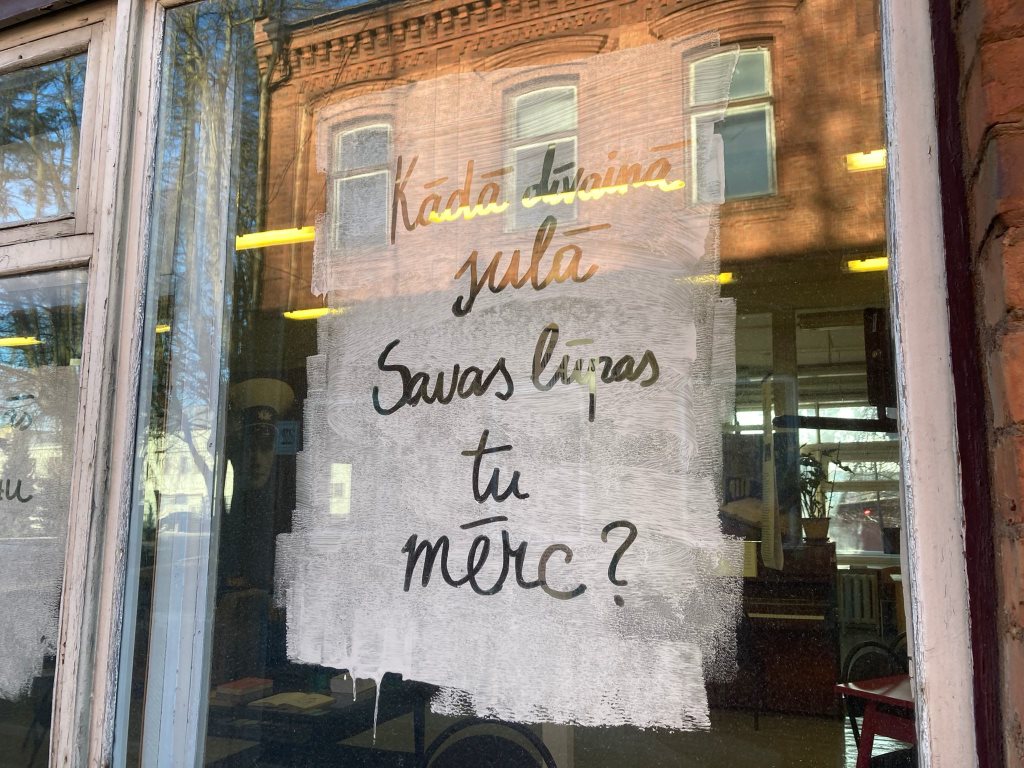 Kādā dīvainā
sulā
Savas lūpas
tu
mērc?